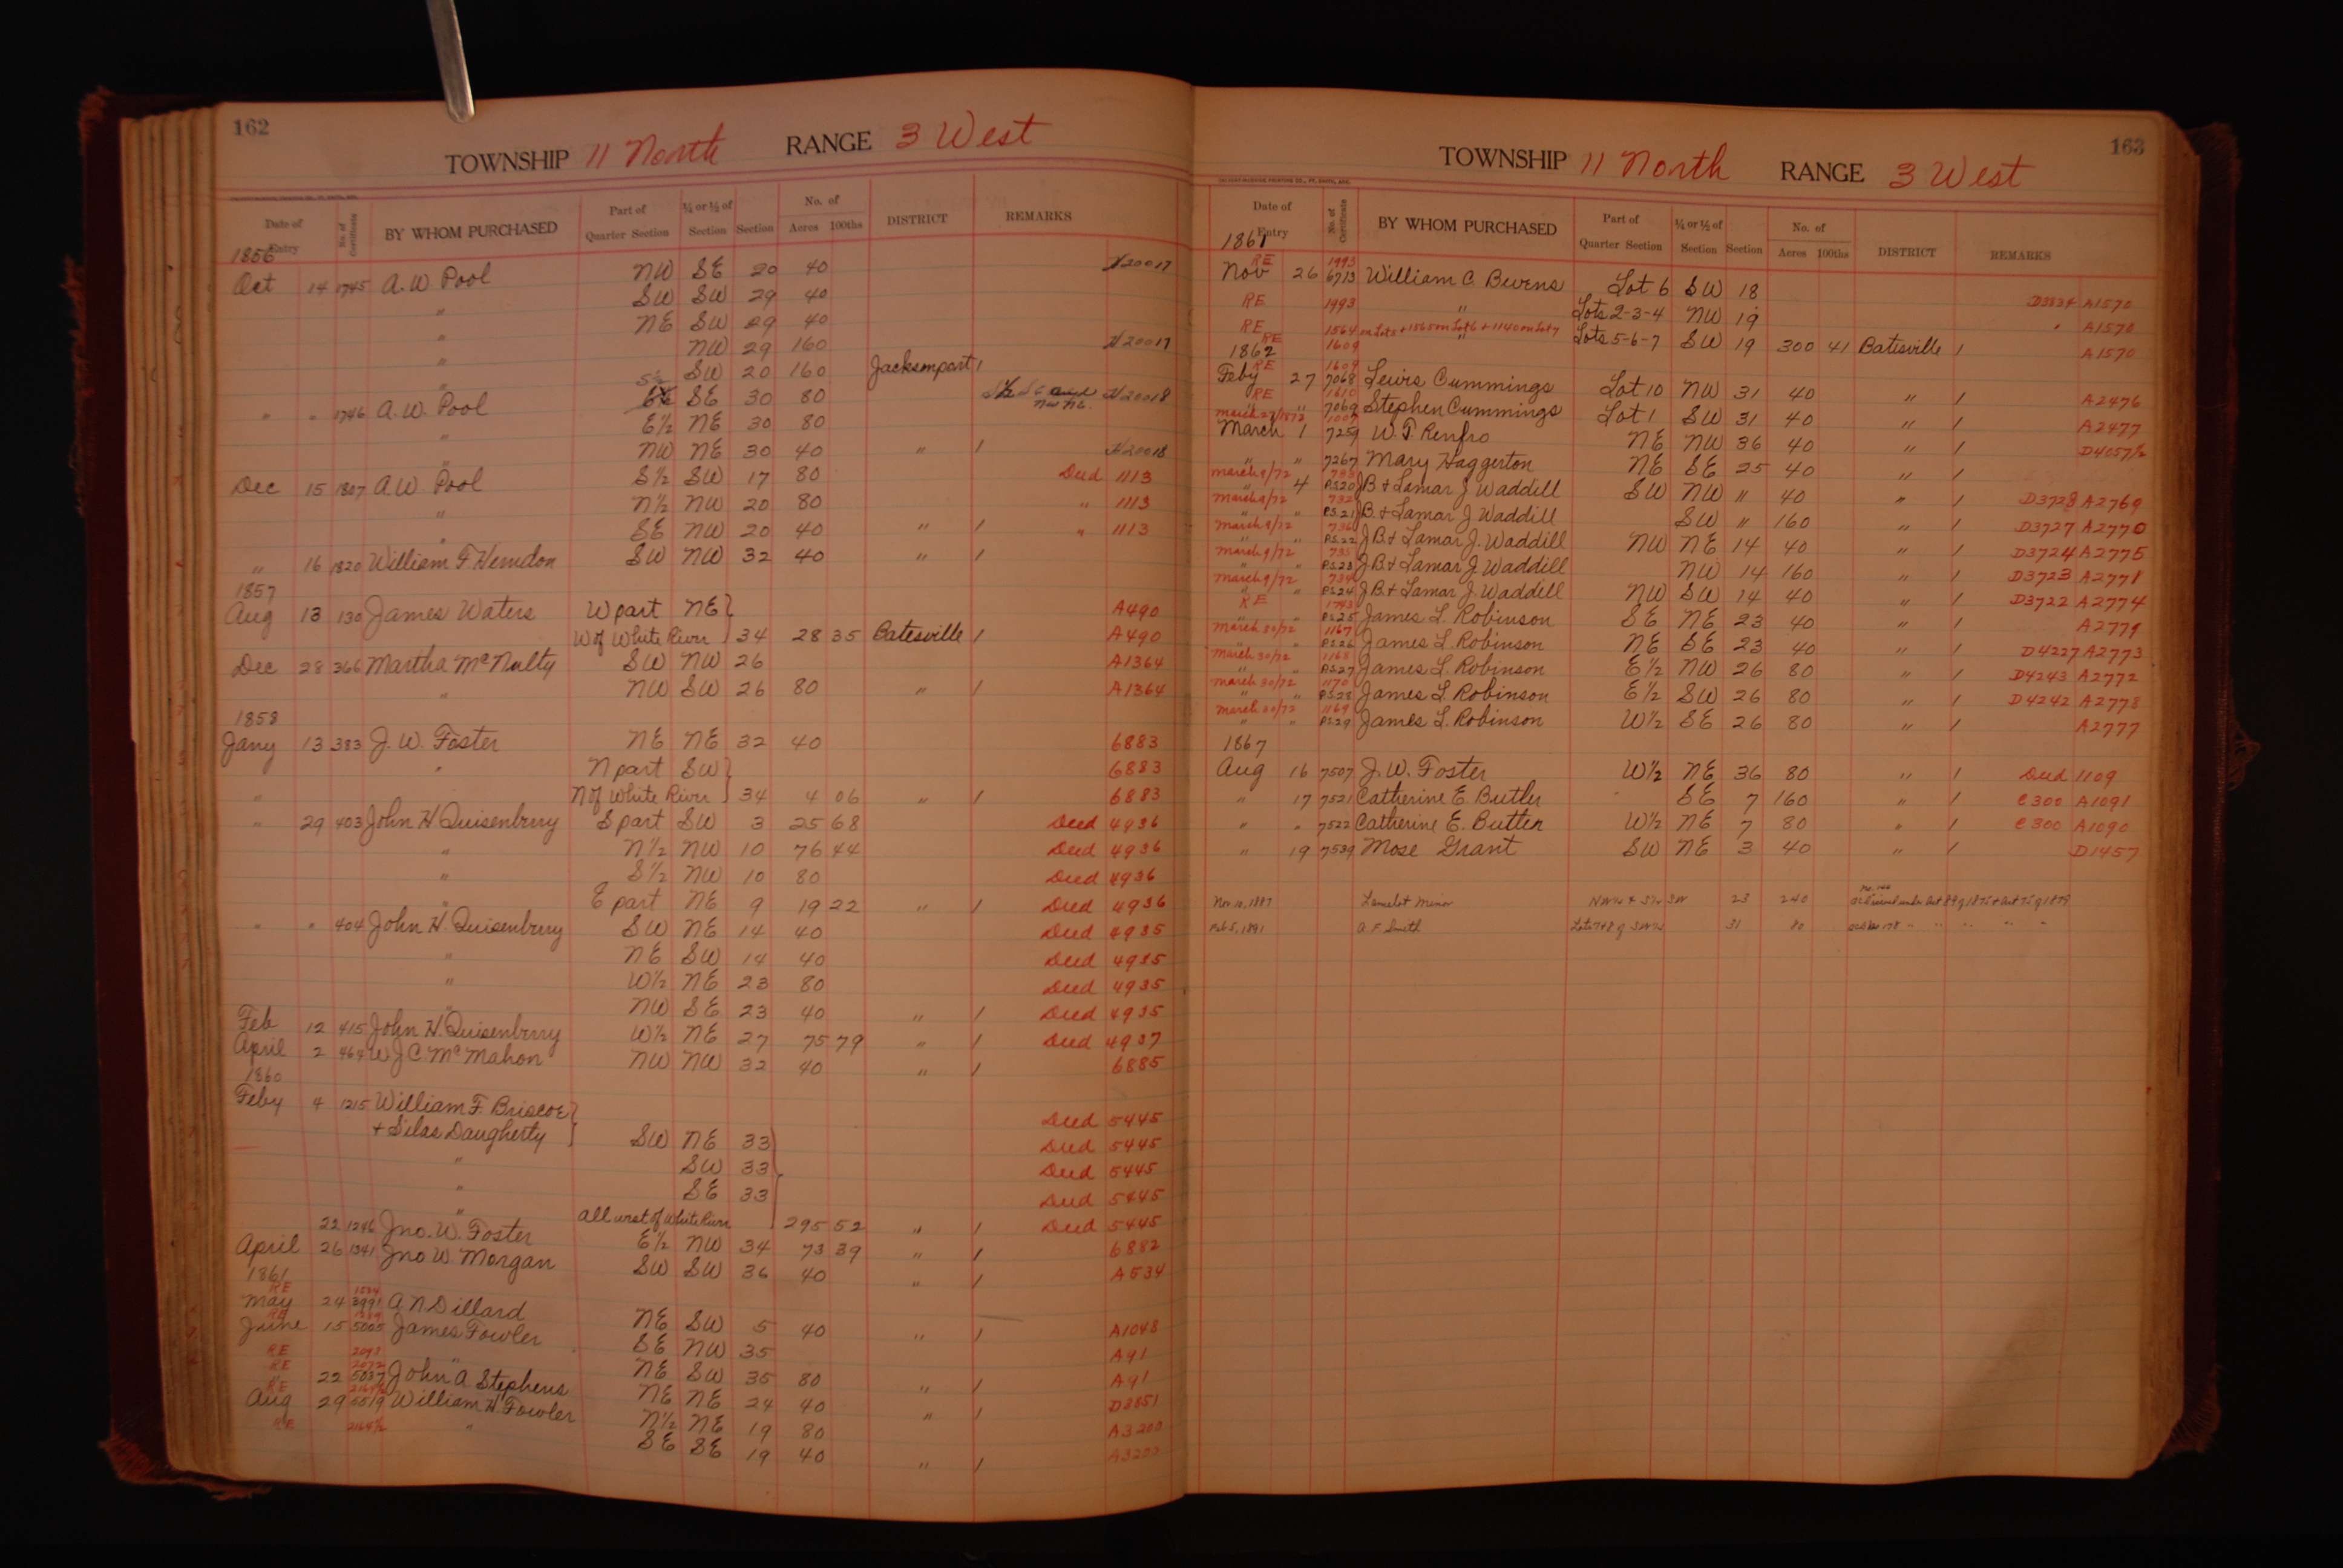 162
TOWNSHIP 11 North RANGE 3 West
Date of Entry No. of Certificate BY WHOM PURCHASED Part of Quarter Section ¼ or ½ of Section Section No. of Acres 100ths DISTRICT REMARKS
1856
Oct 14 1745 A. W. Pool NW SE 20 40 N20017
" SW SW 29 40
" NE SW 29 40
" NW 29 160 N20017
" SW 20 160 Jacksonport 1
" " 1746 A. W. Pool S½ SE 30 80 N20018
" E½ NE 30 80
" NW NE 30 40 " 1 N20018
Dec 15 1807 A. W. Pool S½ SW 17 80 Deed 1113
" N½ NW 20 80 " 1113
" SE NW 20 40 " 1 " 1113
" 16 1820 William F. Herndon SW NW 32 40 " 1
1857
Aug 13 130 James Waters W part NE } A490
W of White River 34 28 35 Batesville 1 A490
Dec 28 366 Martha McNulty SW NW 26 A1364
" NW SW 26 80 " 1 A1364
1858
Jany 13 383 J. W. Foster NE NE 32 40 6883
" N part SW } 6883
" N of White River 34 4 06 " 1 6883
" 29 403 John H Quisenbrry S part SW 3 25 68 Deed 4936
" N½ NW 10 76 44 Deed 4936
" S½ NW 10 80 Deed 4936
" E part NE 9 19 22 " 1 Deed 4936
" " 404 John H. Quisenbrry SW NE 14 40 Deed 4935
" NE SW 14 40 Deed 4935
" W½ NE 23 80 Deed 4935
" NW SE 23 40 " 1 Deed 4935
Feb 12 415 John H. Quisenbrry W½ NE 27 75 79 " 1 Deed 4937
April 2 464 W J C McMahon NW NW 32 40 " 1 6885
1860
Feby 4 1215 William F. Briscoe } Deed 5445
+ Silas Daugherty SW NE 33 Deed 5445
" SW 33 Deed 5445
" SE 33 Deed 5445
" all west of White River 295 52 " 1 Deed 5445
22 1246 Jno. W. Foster E½ NW 34 73 39 " 1 6882
April 26 1341 Jno W. Morgan SW SW 36 40 " 1 A534
1861
RE
May 24 3991 A N Dillard NE SW 5 40 " 1 A1048
RE
June 15 5005 James Fowler SE NW 35 A91
RE 2093 " NE SW 35 80 " 1 A91
RE 2072
22 5037 John A Stephens NE NE 24 40 " 1 D3851
RE
Aug 29 5519 William H Fowler N½ NE 19 80 A3200
RE 2164½ " SE SE 19 40 " 1 A3200
163
TOWNSHIP 11 North RANGE 3 West
Date of Entry No. of Certificate BY WHOM PURCHASED Part of Quarter Section ¼ or ½ of Section Section No. of Acres 100ths DISTRICT REMARKS
1861
RE 1993
Nov 26 6713 William C. Bevens Lot 6 SW 18 A1570
RE 1993 " Lots 2-3-4 NW 19 " A1570
RE 1564 on Lot 5 + 1565 on Lot 6 + 1140 on Lot 7 " Lots 5-6-7 SW 19 300 41 Batesville 1 A1570
1862 RE 1609
RE 1609
Feby 27 7068 Lewis Cummings Lot 10 NW 31 40 " 1 A2476
RE 1610
" " 7069 Stephen Cummings Lot 1 SW 31 40 " 1 A2477
March 27/1872 1007
March 1 7259 W. T. Renfro NE NW 36 40 " 1 D4057½
" " 7267 Mary Haggerton NE SE 25 40 " 1
March 9/72 733
" 4 P.S.20 JB + Lamar J Waddill SW NW " 40 " 1 D3728 A2769
March 9/72 732
" " P.S.21 J.B. + Lamar J Waddill SW " 160 " 1 D3727 A2770
March 9/72 736
" " P.S.22 J B. + Lamar J. Waddill NW NE 14 40 " 1 D3724 A2775
March 9/72 735
" " P.S.23 J B. + Lamar J Waddill NW 14 160 " 1 D3723 A2771
March 9/72 734
" " P.S.24 J B. + Lamar J. Waddill NW SW 14 40 " 1 D3722 A2774
RE 1743
" " P.S.25 James L. Robinson SE NE 23 40 " 1 A2779
March 30/72 1167
" " P.S.26 James L. Robinson NE SE 23 40 " 1 D4227 A2773
March 30/72 1168
" " P.S.27 James L. Robinson E½ NW 26 80 " 1 D4243 A2772
March 30/72 1170
" " P.S.28 James L. Robinson E½ SW 26 80 " 1 D4242 A2778
March 30/72 1169
" " P.S.29 James L. Robinson W½ SE 26 80 " 1 A2777
1867
Aug 16 7507 J. W. Foster W½ NE 36 80 " 1 Deed 1109
" 17 7521 Catherine E. Butler SE 7 160 " 1 C300 A1091
" " 7522 Catherine E. Butler W½ NE 7 80 " 1 C300 A1090
" 19 7539 Mose Grant SW NE 3 40 " 1 D1457
Nov 10, 1887 Lancelot Minor NW¼ + S½ SW 23 240
Feb 5, 1891 A. F. Smith Lots 7+8 of SW¼ 31 80